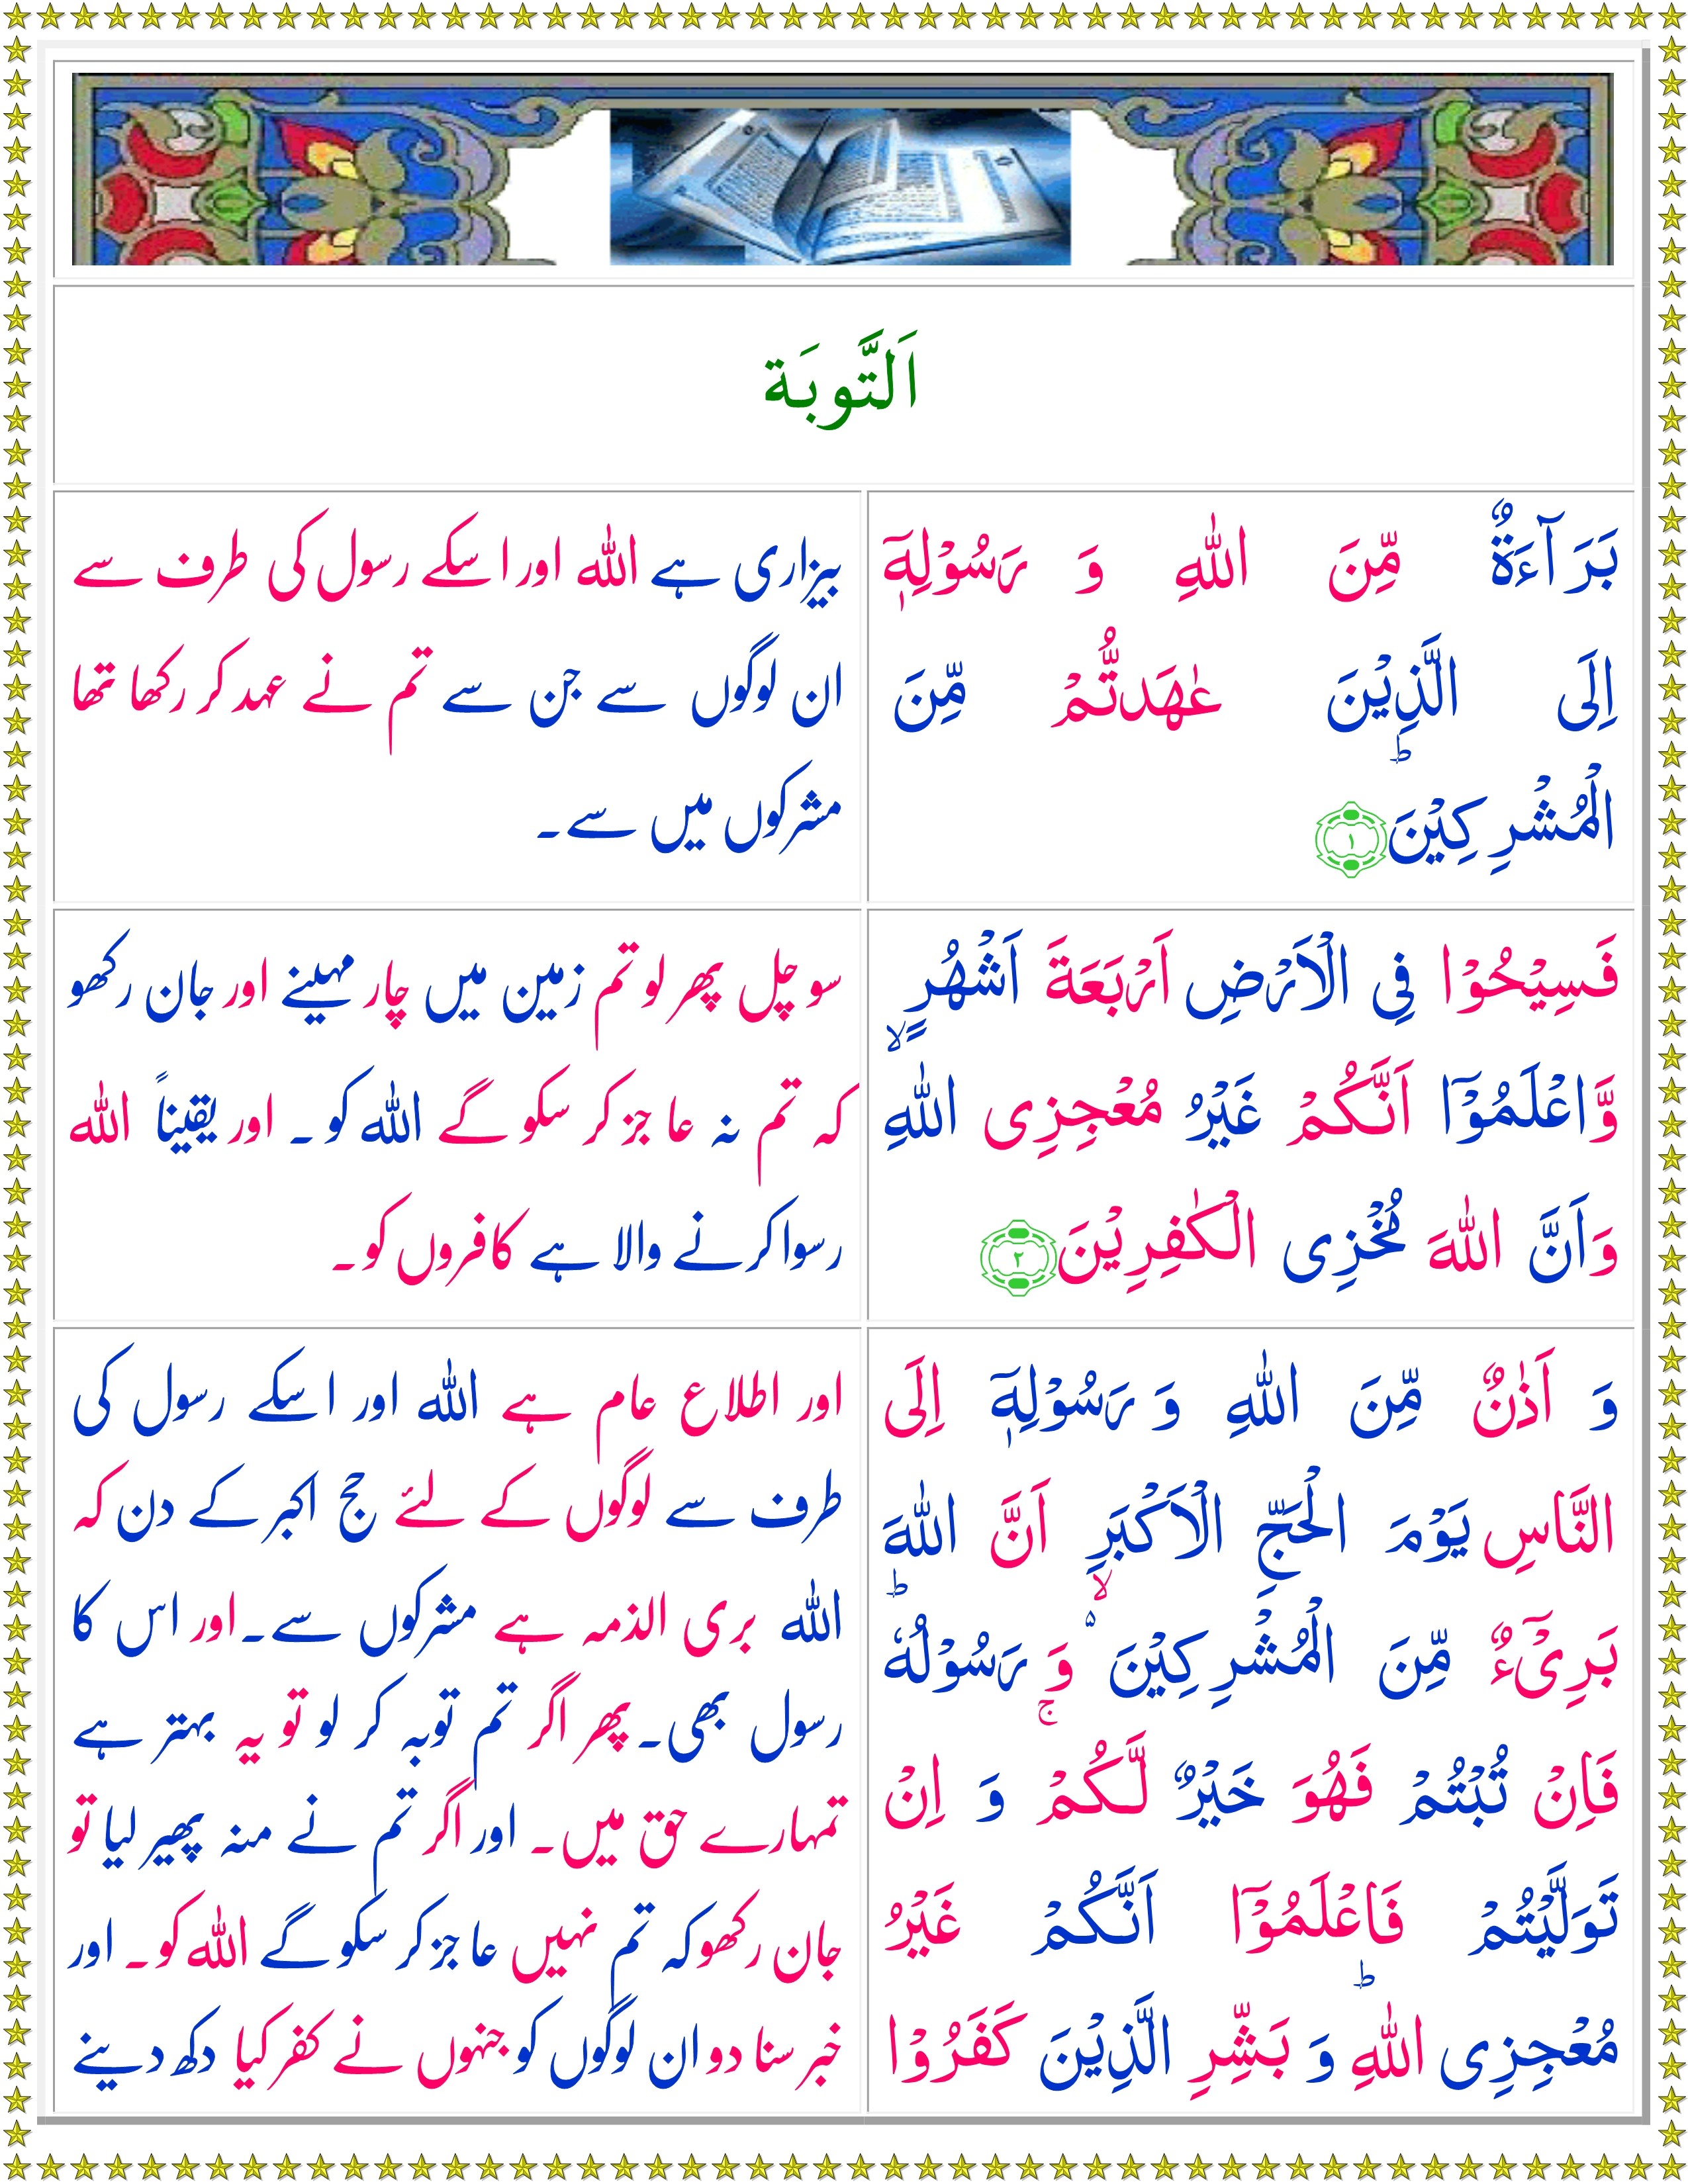 اَلتَّوبَة
بَرَآءَةٌ مِّنَ اللّٰهِ وَ رَسُوْلِهٖۤ
اِلَى الَّذِيْنَ عٰهَدتُّمْ مِّنَ
الْمُشْرِكِيْنَؕ ۝۱
بیزاری ہے اللہ اور اسکے رسول کی طرف سے
ان لوگوں سے جن سے تم نے عہد کر رکھا تھا
مشرکوں میں سے۔
فَسِيْحُوْا فِى الْاَرْضِ اَرْبَعَةَ اَشْهُرٍۙ
وَّاعْلَمُوْۤا اَنَّكُمْ غَيْرُ مُعْجِزِى اللّٰهِ
وَاَنَّ اللّٰهَ مُخْزِى الْكٰفِرِيْنَ ۝۲
سو چل پھر لو تم زمین میں چار مہینے اور جان رکھو
کہ تم نہ عاجز کر سکو گے اللہ کو۔ اور یقیناً اللہ
رسوا کرنے والا ہے کافروں کو۔
وَ اَذٰنٌ مِّنَ اللّٰهِ وَ رَسُوْلِهٖۤ اِلَى
النَّاسِ يَوْمَ الْحَجِّ الْاَكْبَرِ اَنَّ اللّٰهَ
بَرِىْٓءٌ مِّنَ الْمُشْرِكِيْنَۙ۬ وَ رَسُوْلُهٗؕ
فَاِنْ تُبْتُمْ فَهُوَ خَيْرٌ لَّكُمْۚ وَ اِنْ
تَوَلَّيْتُمْ فَاعْلَمُوْۤا اَنَّكُمْ غَيْرُ
مُعْجِزِى اللّٰهِؕ وَ بَشِّرِ الَّذِيْنَ كَفَرُوْا
اور اطلاع عام ہے اللہ اور اسکے رسول کی
طرف سے لوگوں کے لئے حج اکبر کے دن کہ
اللہ بری الذمہ ہے مشرکوں سے۔ اور اس کا
رسول بھی۔ پھر اگر تم توبہ کر لو تو یہ بہتر ہے
تمہارے حق میں۔ اور اگر تم نے منہ پھیر لیا تو
جان رکھو کہ تم نہیں عاجز کر سکو گے اللہ کو۔ اور
خبر سنا دو ان لوگوں کو جنہوں نے کفر کیا دکھ دینے